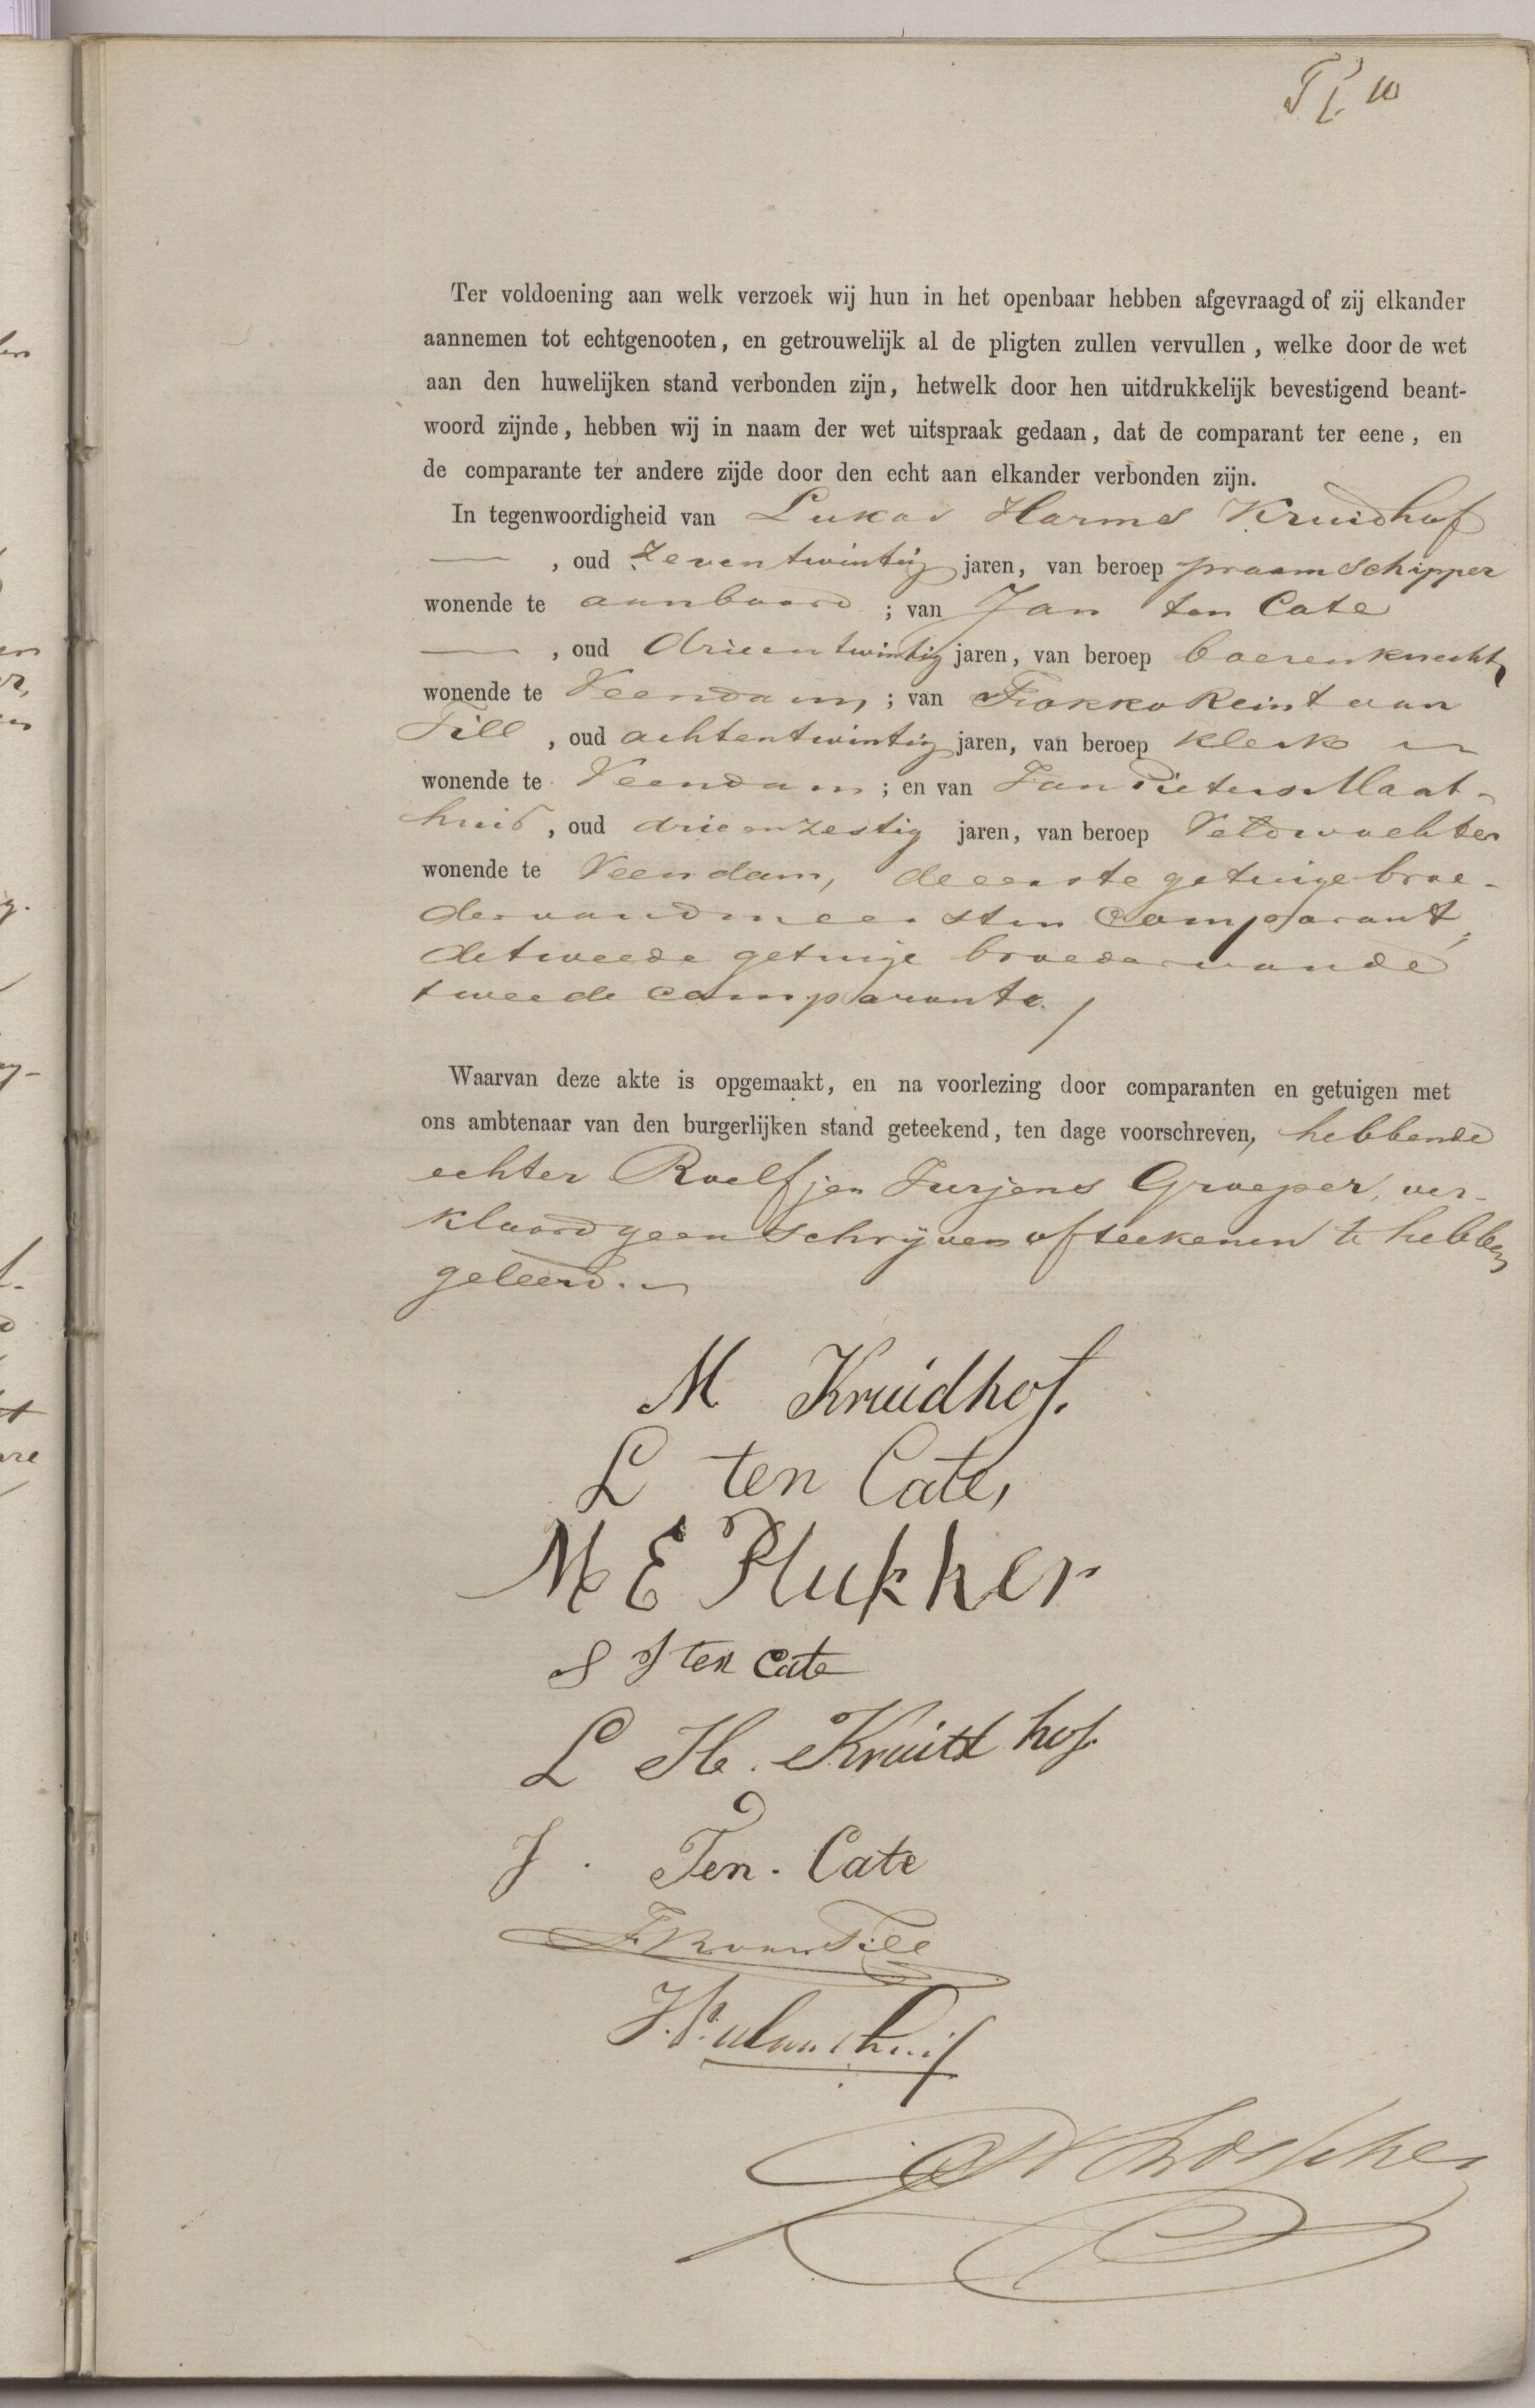 Ter voldoening aan welk verzoek wij hun in het openbaar hebben afgevraagd of zij elkander
aannemen tot echtgenooten, en getrouwelijk al de pligten zullen vervullen, welke door de wet
aan den huwelijken stand verbonden zijn, hetwelk door hen uitdrukkelijk bevestigend beant-
woord zijnde, hebben wij in naam der wet uitspraak gedaan, dat de comparant ter eene, en
de comparante ter andere zijde door den echt aan elkander verbonden zijn.
In tegenwoordigheid van Lukas Harms Kruidhof
—, oud zeventwintig jaren, van beroep praamschipper
wonende te aanboord ; van Jan ten Cate
—, oud drieentwintig jaren, van beroep boerenknecht
wonende te Veendam, ; van Fokko Reint van
Till, oud achtentwintig jaren, van beroep klerk
wonende te Veendam ; en van Jan Pieters Maat-
huis, oud drieenzestig jaren, van beroep Veldwachter
wonende te Veendam, de eerste getuige broe-
der van den eersten comparant,
de tweede getuige broeder van de
tweede comparante.
Waarvan deze akte is opgemaakt, en na voorlezing door comparanten en getuigen met
ons ambtenaar van den burgerlijken stand geteekend, ten dage voorschreven, hebbende
echter Roelfjen Jurjens Groeper, ver-
klaard geen schrijven of teekenen te hebben
geleerd.
M Kruidhof.
L ten Cate,
M E Plukker
S J ten Cate
L H. Kruidhof.
J. Ten. Cate
F R van Till
J. P. Maathuis